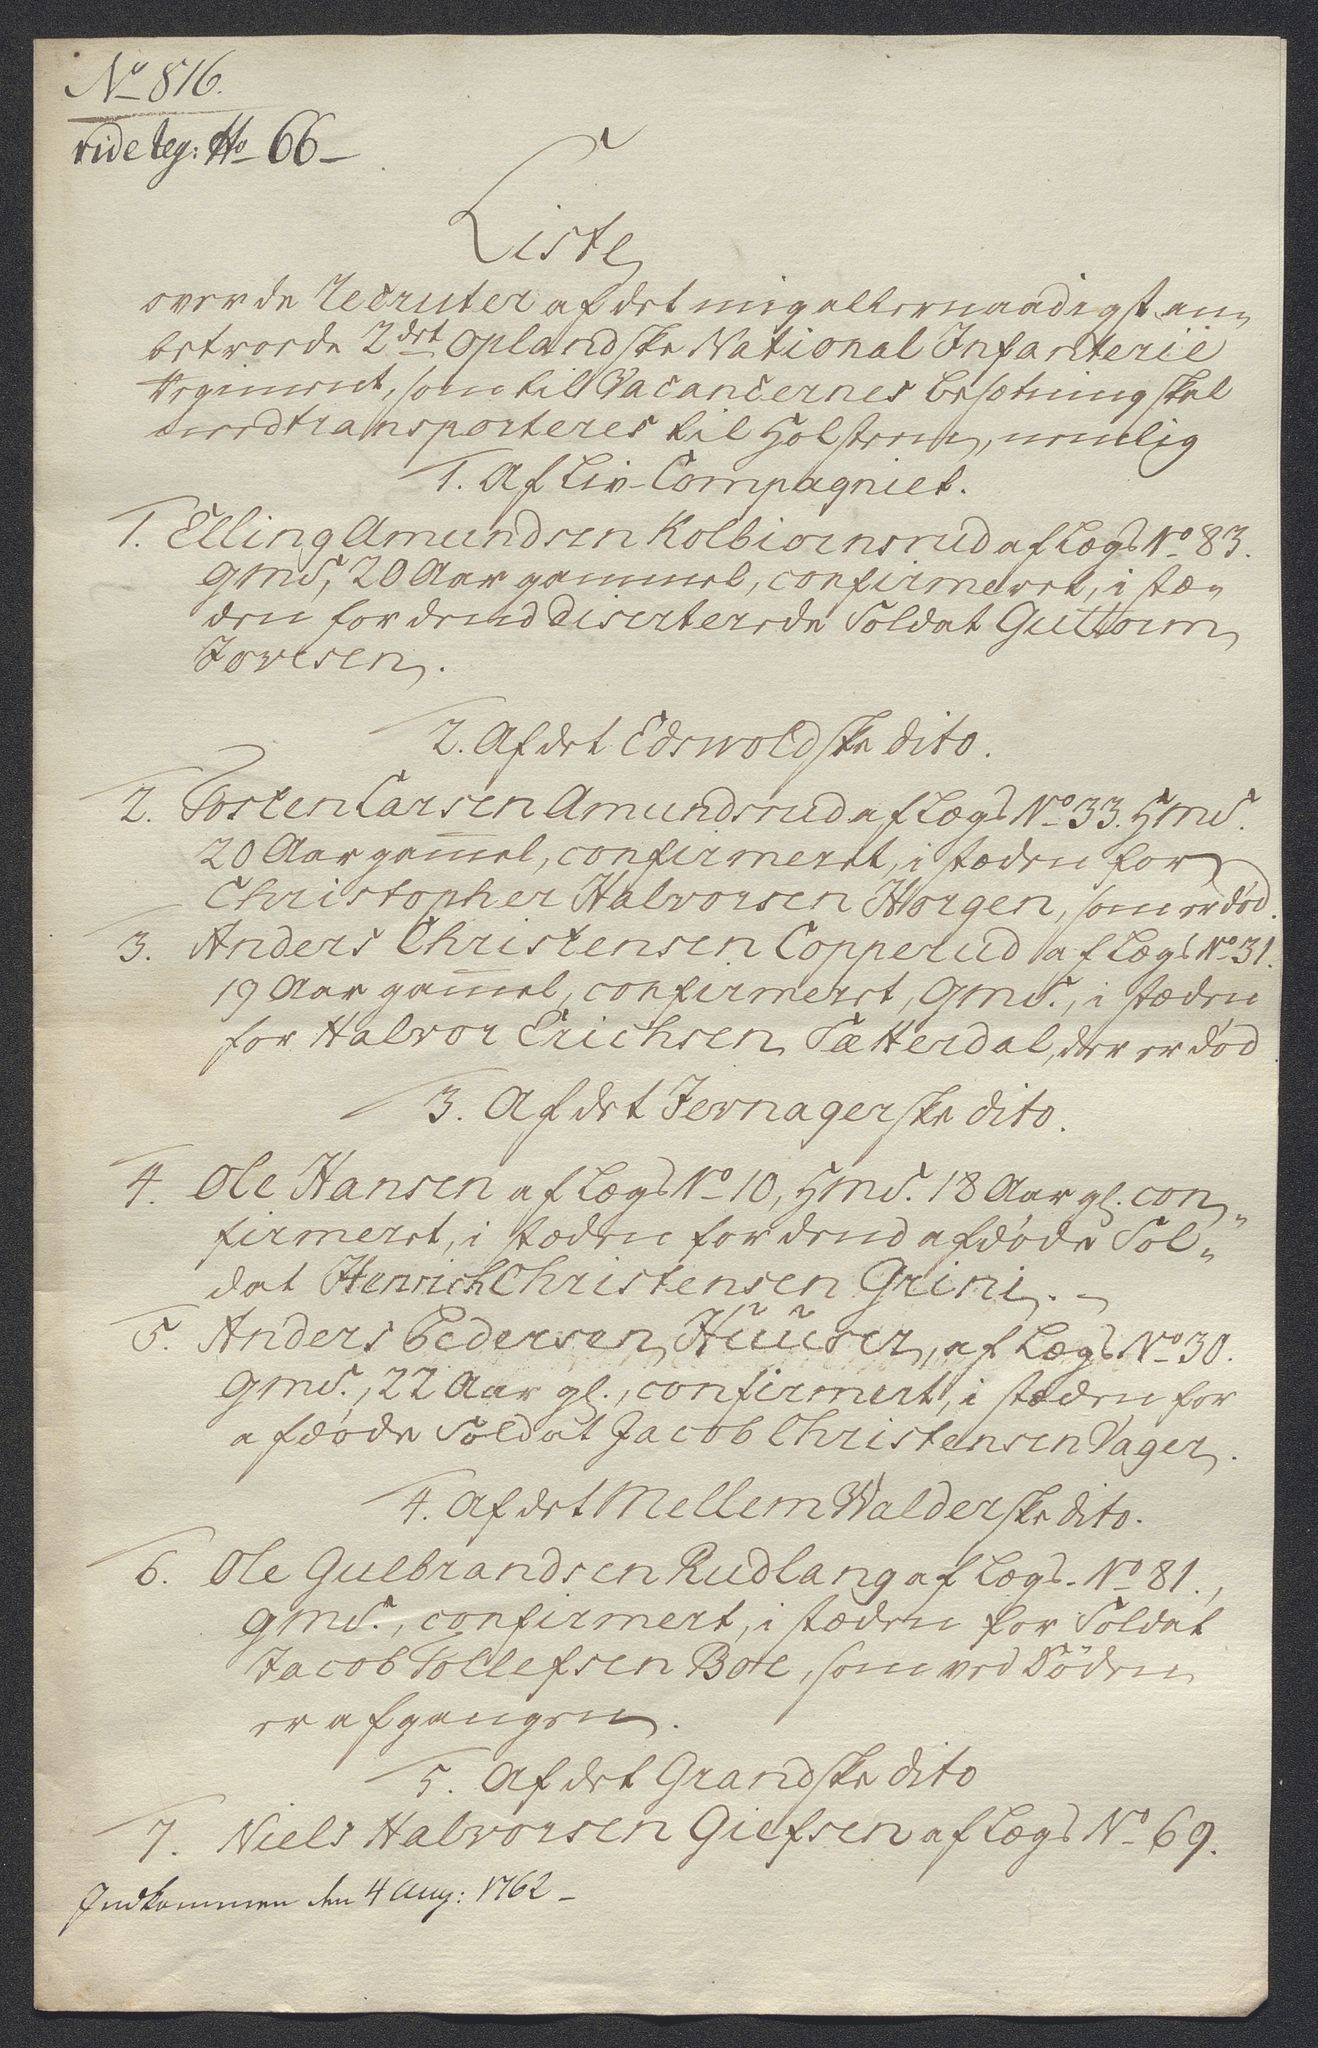 No 816.
vide leg: No 66 –
Liste
over de Recruter af det mig allernaadigst an,,
betroede 2det Oplandske National Infanterie
Regiment, som til Vacancernes Besætning skal
nedtransporteres til Holsteen, nemlig
1. Af Liv-Compagniet.
1. Elling Amundsen Kolbiørnsrud af Lægd No 83.
gmS, 20 Aar gammel, confirmeret, i stæ,,
den for dend Diserterede Soldat Guttorm
Joresen.
2. Af det Edswoldske dito.
2. Tosten Larsen Amundsrud af Lægd No 33. HmS.
20 Aar gammel, confirmeret, i stæden for
Christopher Halvorsen Horgen, som er død.
3. Anders Christensen Copperud af Lægd No 31.
19 Aar gammel, confirmeret, GmS., i stæden
for Halvor Erichsen Sætterdal, der er død
3. Af det Jevnagerske dito.
4. Ole Hansen af Lægd No 10, HmS. 18 Aar gl. con„
firmeret, i stæden for dend afdøde Sol„
dat Henrich Christensen Grini. –
5. Anders Pedersen Huuser, af Lægd No 30.
GmS., 22 Aar gl., confirmert, i stæden for
afdøde Soldat Jacob Christensen Vager.
4. Af det Mellem Walderske dito.
6. Ole Gulbrandsen Rudlang af Lægd. No 81.,
gmS., confirmert, i stæden for Soldat
Jacob Tollefsen Boe, som ved Døden
er afgangen.
5. Af det Grandske dito
7. Niels Halvorsen Giefsen af Lægd No 69.
Indkommen den 4 Aug: 1762 –